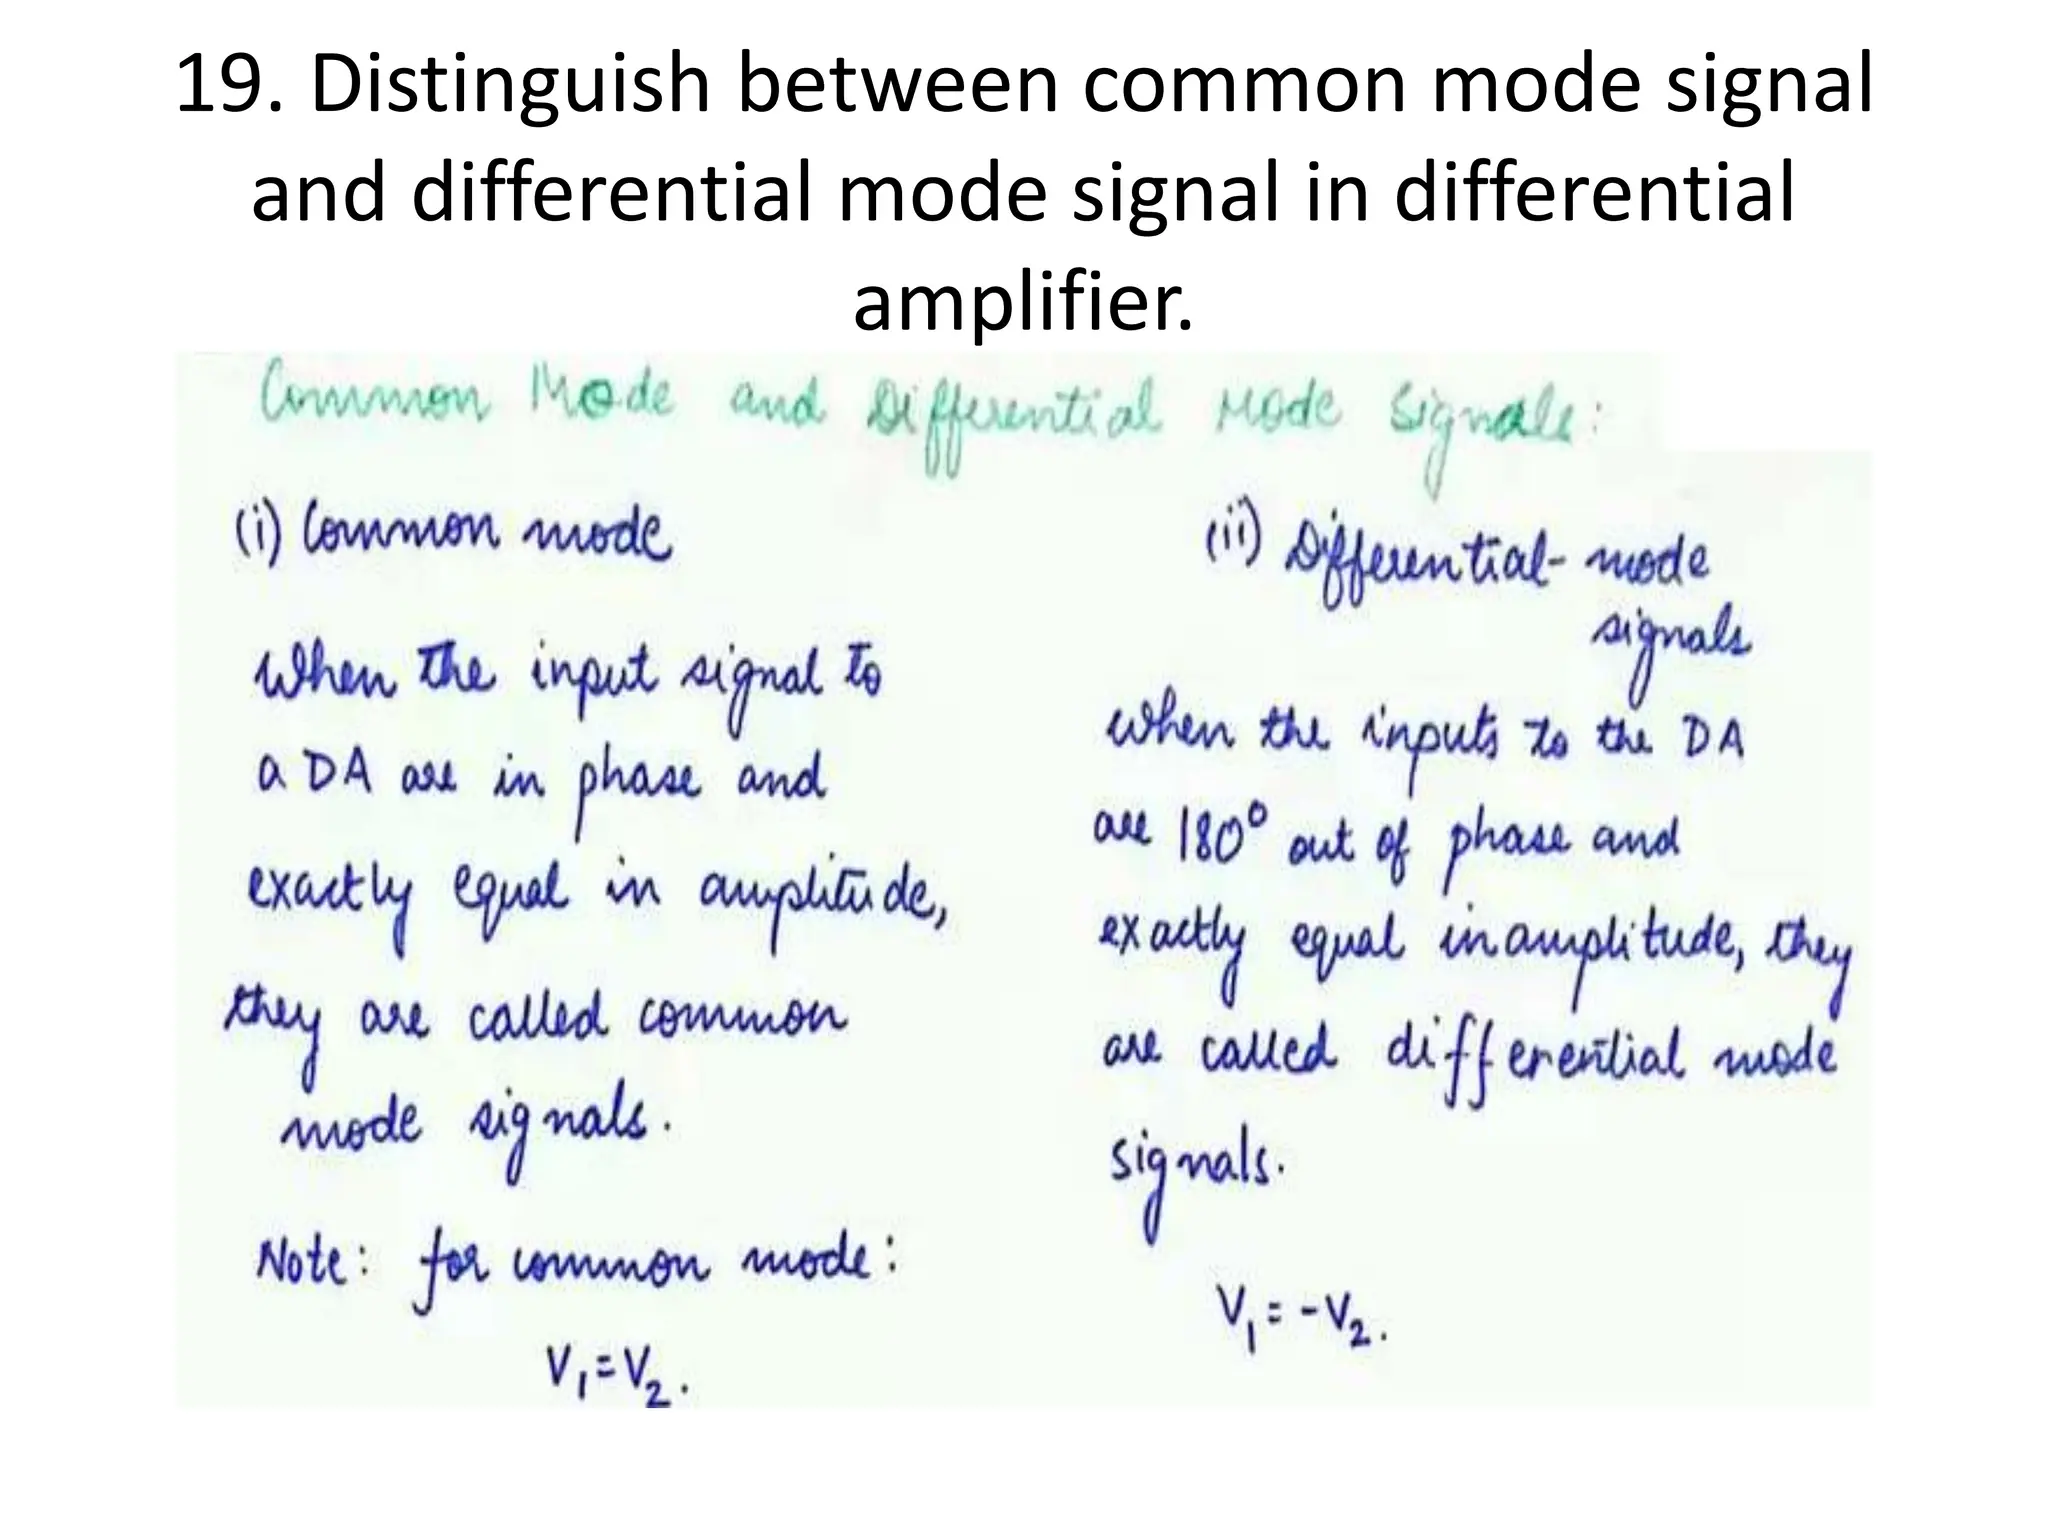 19. Distinguish between common mode signal
and differential mode signal in differential
amplifier.
Common Mode and Differential Mode Signals:
(i) Common mode
When the input signal to
a DA are in phase and
exactly equal in amplitude,
they are called common
mode signals.
Note: for common mode:
V₁=V₂.
(ii) Differential-mode
signals
When the inputs to the DA
are 180° out of phase and
exactly equal in amplitude, they
are called differential mode
signals.
V₁=-V₂.